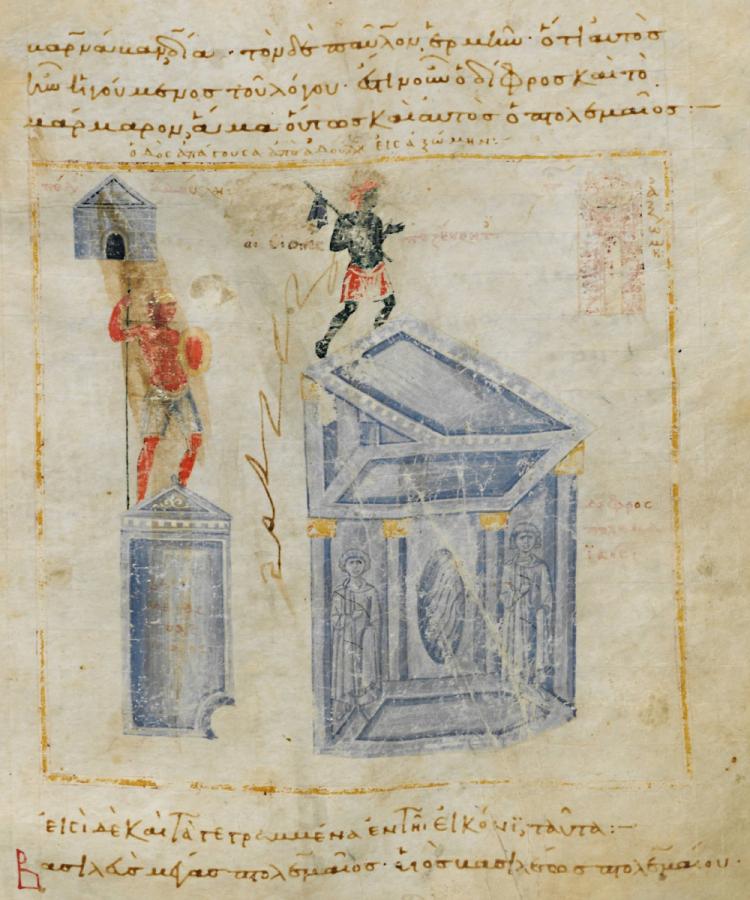 βαρνάβαν δία · τὸν δὲ παῦλον, ἑρμῆν · ὅτι αὐτὸς
ἦν ἡγούμενος τοῦ λόγου · ἔστιν οὖν ὁ δίφρος καὶ τὸ
μάρμαρον, ἅμα οὕτως καὶ αὐτὸς ὁ πτολεμαῖος · —
ὁδὸς ἀπάγουσα ἀπὸ ἀδούλη εἰς ἀξώμην :-
αἰθίοπες
δίφρος
εἰσὶ δὲ καὶ τὰ γεγραμμένα ἐν τῆι εἰκόνϊ, ταῦτα :—
Βασιλεὺς μέγας πτολεμαῖος · υἱὸς βασιλέως πτολεμαίου ·